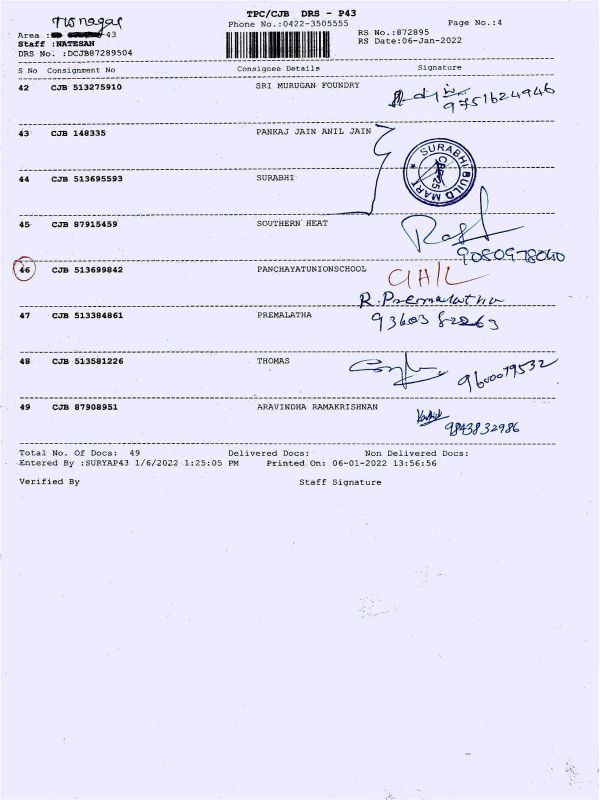 TPC/CJB DRS - P43
Phone No.:0422-3505555
Page No.:4
Area : 43
Staff :NATESAN
DRS No. :DCJB87289504
RS No.:872895
RS Date:06-Jan-2022
S No Consignment No Consignee Details Signature
42 CJB 513275910 SRI MURUGAN FOUNDRY
9751624946
43 CJB 148335 PANKAJ JAIN ANIL JAIN
SURABHI BUILD MART
44 CJB 513695593 SURABHI
45 CJB 87915459 SOUTHERN HEAT
9080978040
46 CJB 513699842 PANCHAYATUNIONSCHOOL
R.Premalatha
47 CJB 513384861 PREMALATHA
48 CJB 513581226 THOMAS
9600079532
49 CJB 87908951 ARAVINDHA RAMAKRISHNAN
9843832986
Total No. Of Docs: 49 Delivered Docs: Non Delivered Docs:
Entered By :SURYAP43 1/6/2022 1:25:05 PM Printed On: 06-01-2022 13:56:56
Verified By Staff Signature